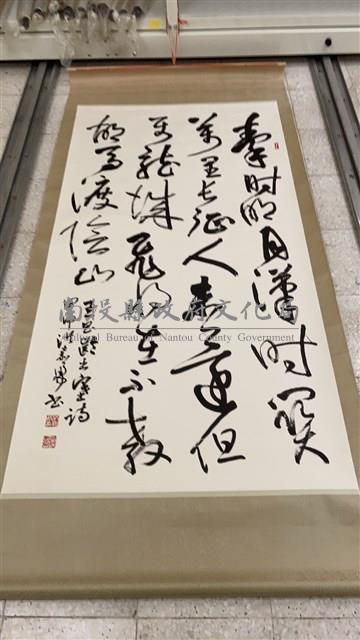 秦時明月漢時關
萬里長征人未還但
使龍城飛將在不教
胡馬渡陰山
王昌齡出塞詩
南投縣政府文化局
Cultural Bureau of Nantou County Government